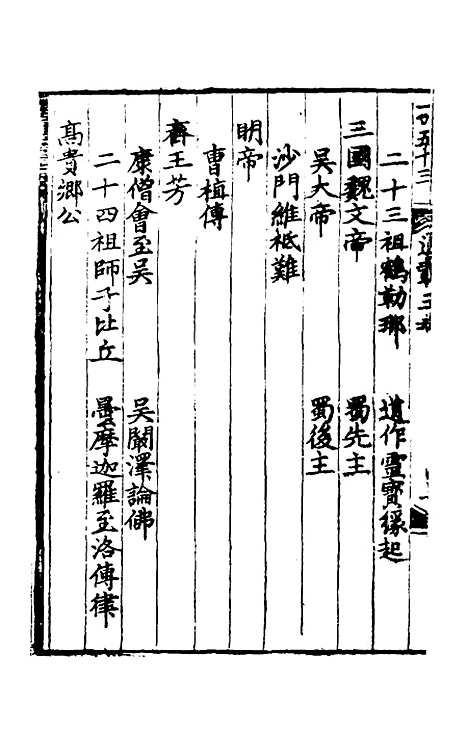 二十三祖鶴勒那 道作靈寶緣起
三國魏文帝 蜀先主
吳大帝 蜀後主
沙門維祇難
明帝
曹植傳
齊王芳
康僧會至吳 吳闞澤論佛
二十四祖師子比丘 曇摩迦羅至洛傳律
高貴鄉公